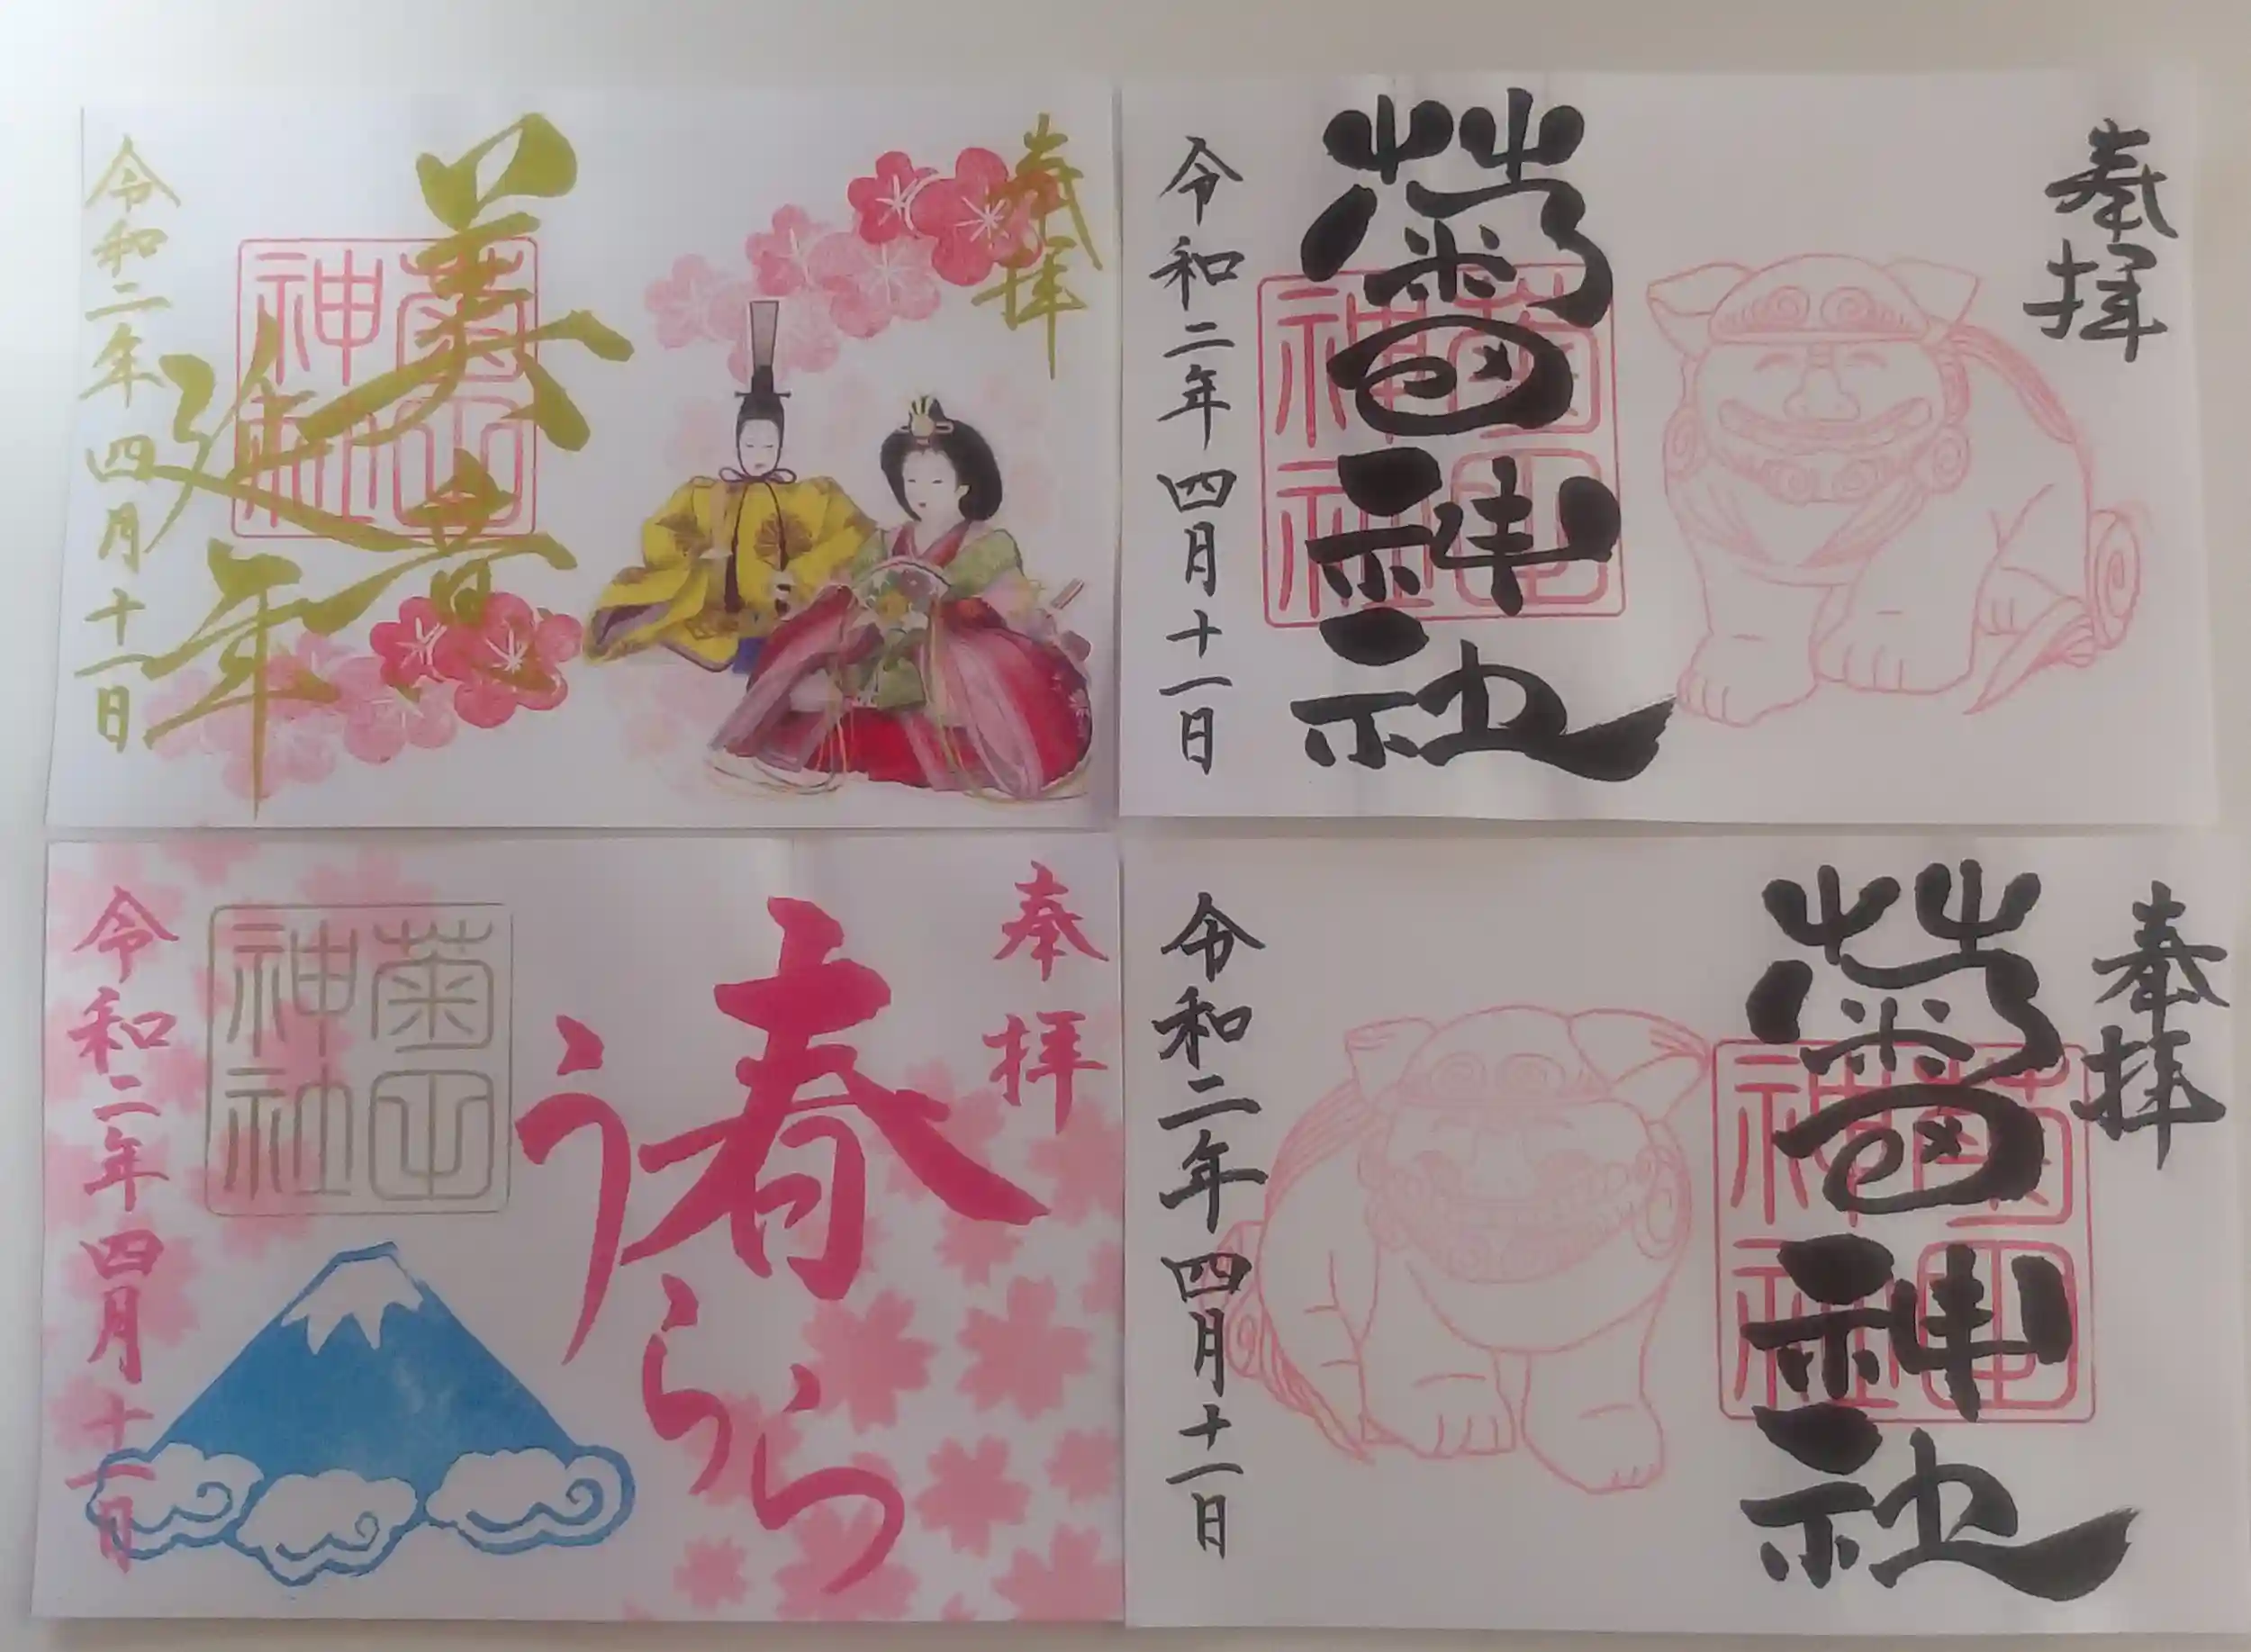 奉拝
美意
延年
菊田
神社
令和二年四月十一日
奉拝
菊田神社
菊田
神社
令和二年四月十一日
奉拝
春
うらら
菊田
神社
令和二年四月十一日
奉拝
菊田神社
菊田
神社
令和二年四月十一日